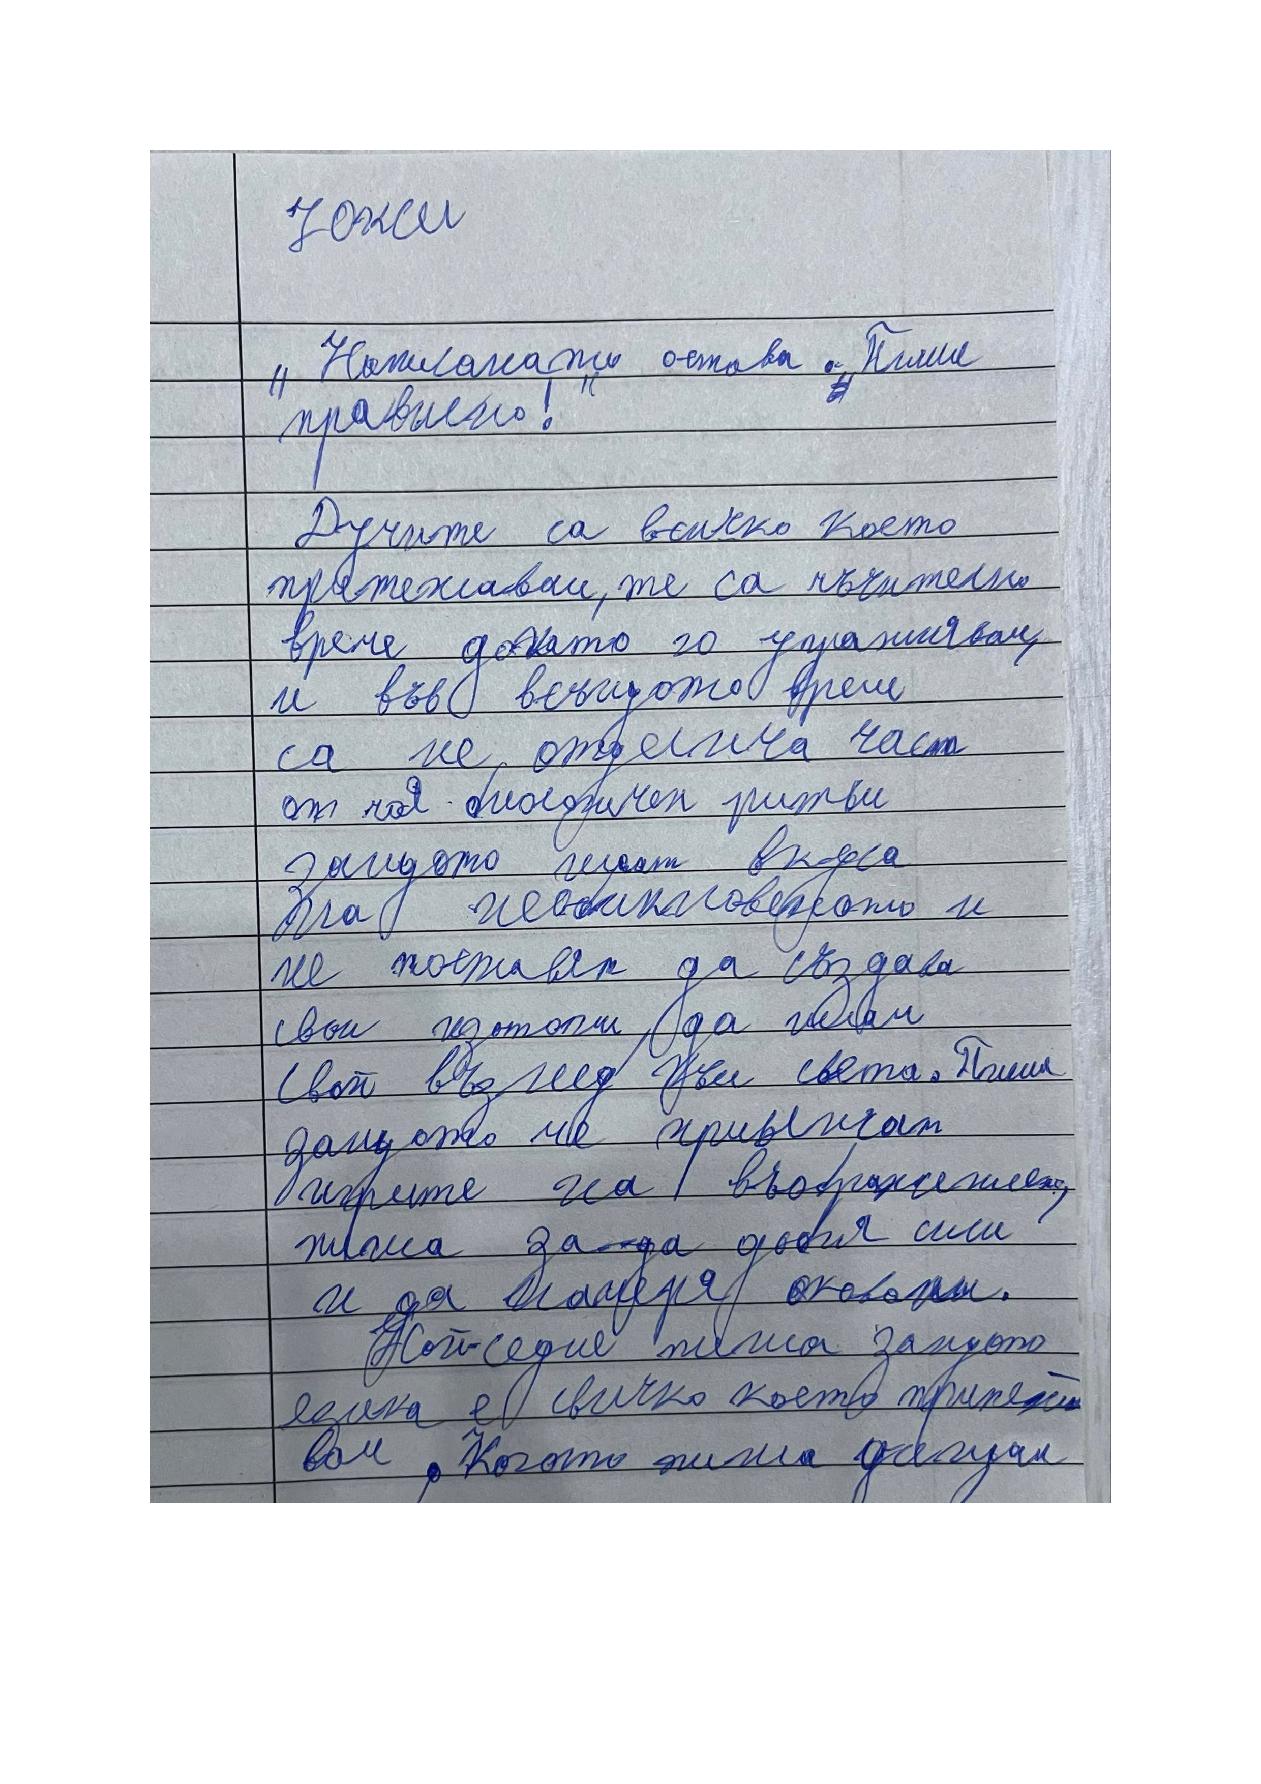 "Написаното остава. Пиши
правилно!"
Думите са всичко което
притежавам, те са мъчително
време докато го упражнявам,
и във същото време
са не отделима част
от моя биологичен ритъм
защото имат вкуса
на необикновеното и
не престават да създава
свои изотопи, да имам
свой възглед към света. Пиша
защото ме привличат
игрите на въображението,
пиша за да добия сили
и да намеря оковани.
Най-сетне пиша защото
езика е всичко което притежа
вам. Когато пиша